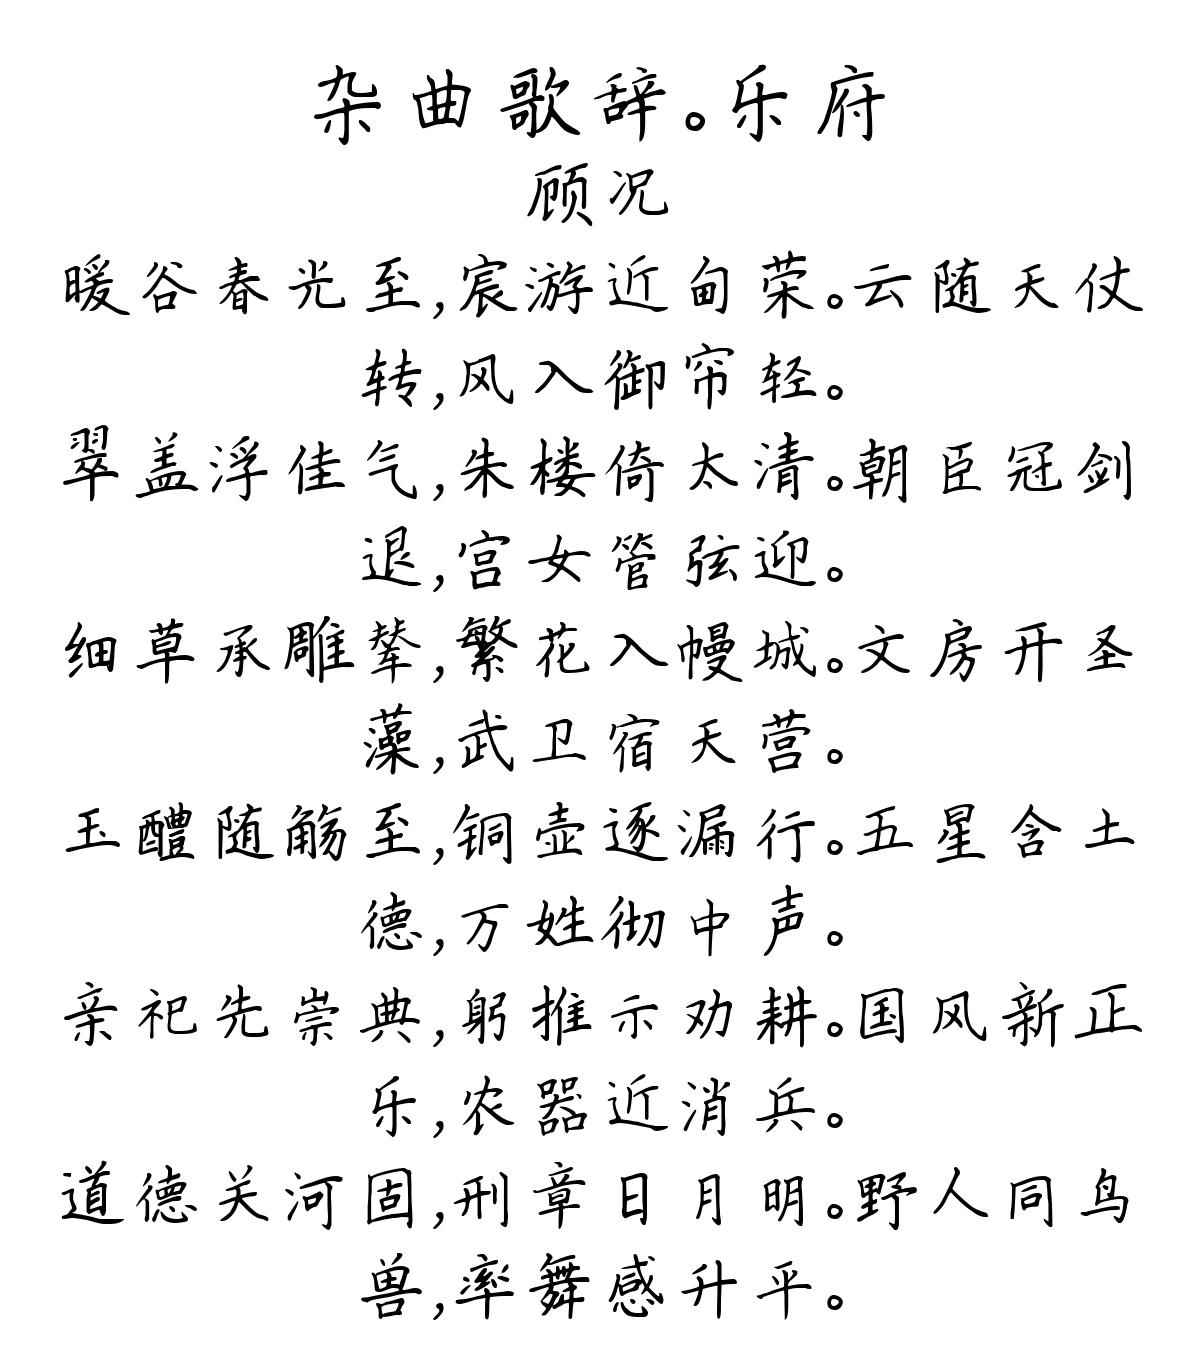 杂曲歌辞。乐府
顾况
暖谷春光至,宸游近甸荣。云随天仗
转,风入御帘轻。
翠盖浮佳气,朱楼倚太清。朝臣冠剑
退,宫女管弦迎。
细草承雕辇,繁花入幔城。文房开圣
藻,武卫宿天营。
玉醴随觞至,铜壶逐漏行。五星含土
德,万姓彻中声。
亲祀先崇典,躬推示劝耕。国风新正
乐,农器近消兵。
道德关河固,刑章日月明。野人同鸟
兽,率舞感升平。